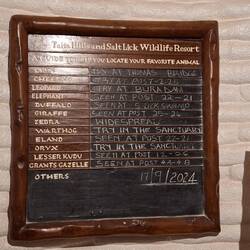 Taita Hills and Salt Lick Wildlife Resort
A GUIDE TO HELP YOU LOCATE YOUR FAVORITE ANIMAL
LION
CHEETAH
LEOPARD STAY AT BURA DAM
ELEPHANT SEEN AT POST 22-21
BUFFALO SEEN AT S.LICK SWAMP
GIRAFFE SEEN AT POST 25-26
ZEBRA WIDESPREAD
WARTHOG TRY IN THE SANCTUARY
ELAND SEEN AT POST 22-21
ORYX TRY IN THE SANCTUARY
LESSER KUDU SEEN AT POST
GRANTS GAZELLE SEEN AT POST
OTHERS 17/9/2024